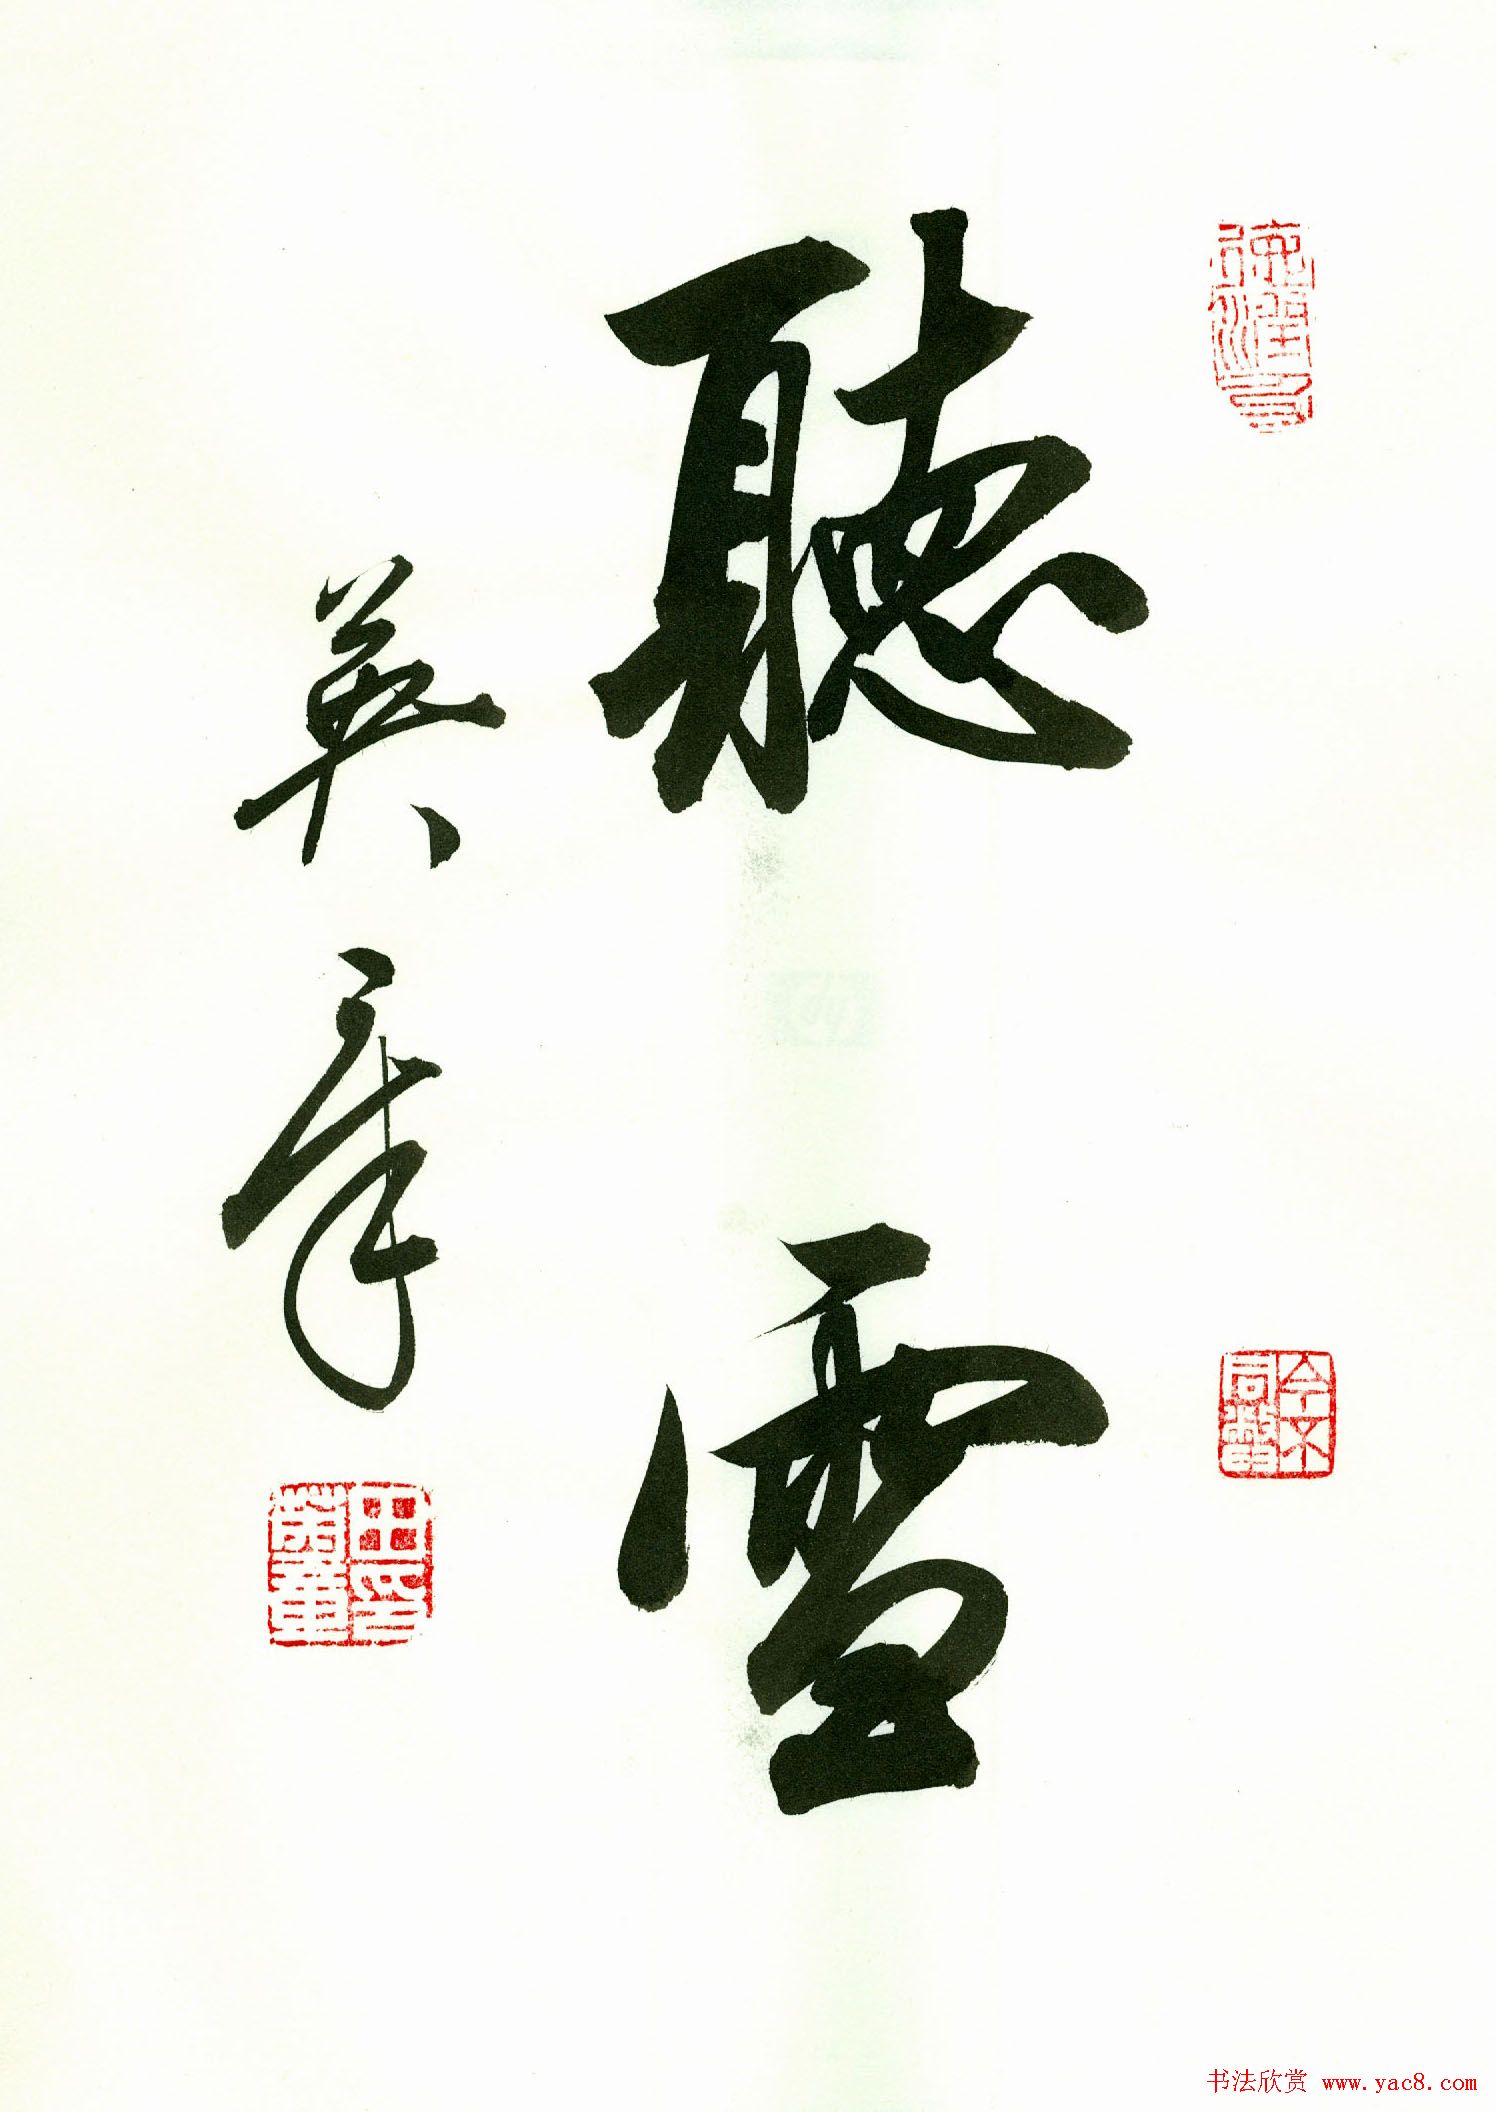 聽雪
英章
田英章印
书法欣赏 www.yac8.com